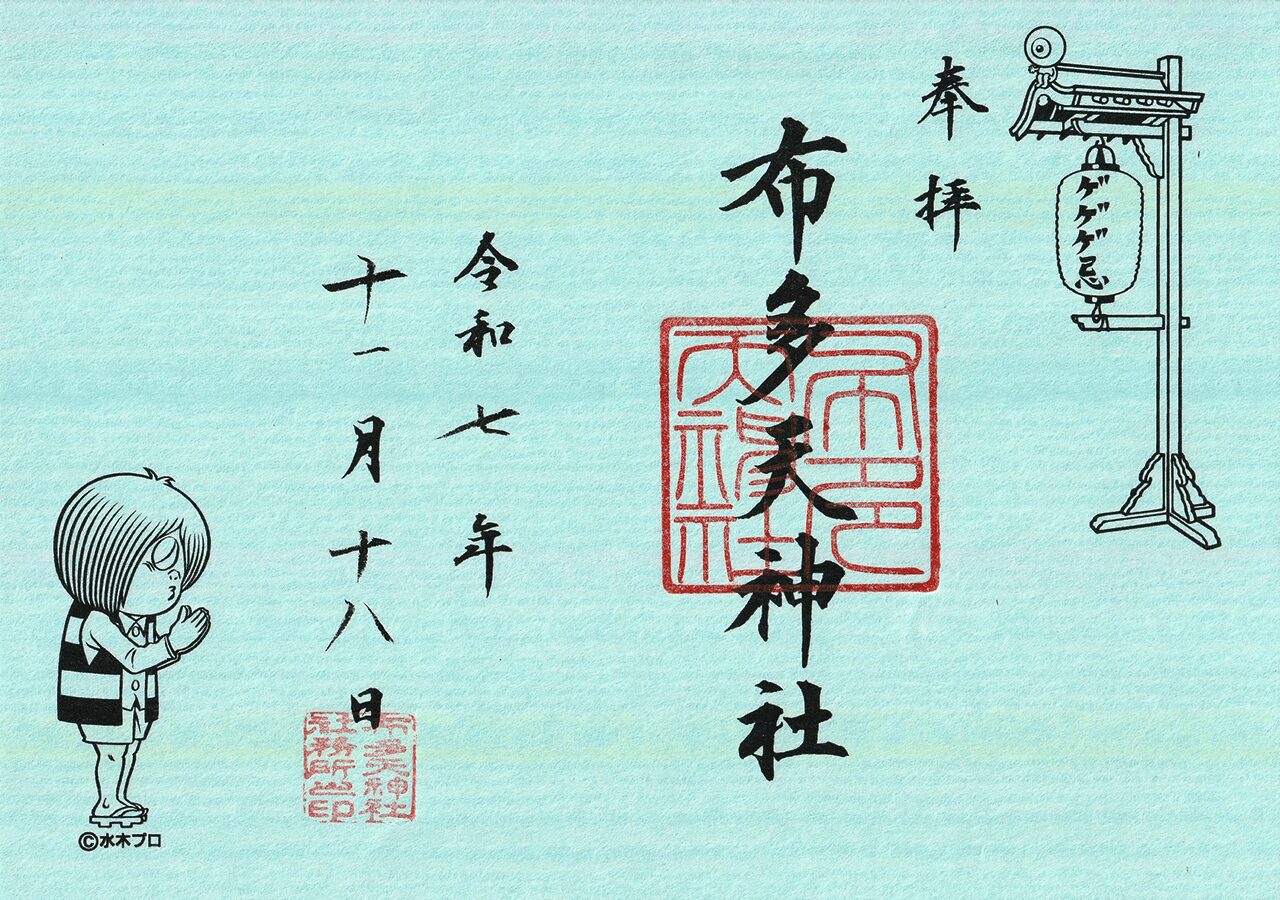 奉拝
ゲゲゲ忌
布多天神社
令和七年
十一月十八日
布多天神社
社務所之印
©水木プロ